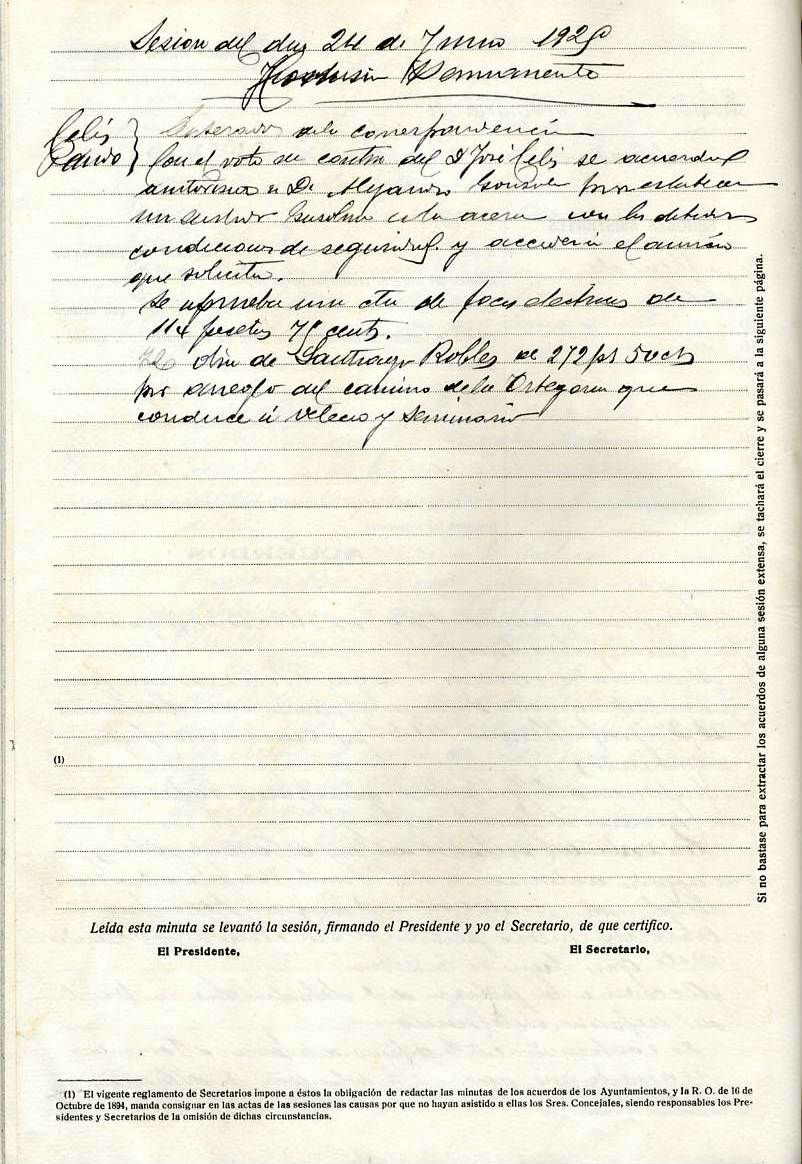 Sesion del dia 24 de Junio 192
Permanente
Celis
Pardo
Enterados de la correspondencia
Con el voto en contra del D José Celis se acuerda
autorizar a D. Alejandro para establecer
un en la acera con las debidas
condiciones de seguridad. y acceder a el
que solicita.
Se aprueba una cta de focos electricos de
114 pesetas 75 cents.
Id otra de Santiago Robles de 272 pts 50 cts
por arreglo del camino de la que
conduce á Velecio y Seminario
(1)
Si no bastase para extractar los acuerdos de alguna sesión extensa, se tachará el cierre y se pasará a la siguiente página.
Leída esta minuta se levantó la sesión, firmando el Presidente y yo el Secretario, de que certifico.
El Presidente,
El Secretario,
(1) El vigente reglamento de Secretarios impone a éstos la obligación de redactar las minutas de los acuerdos de los Ayuntamientos, y la R. O. de 16 de
Octubre de 1894, manda consignar en las actas de las sesiones las causas por que no hayan asistido a ellas los Sres. Concejales, siendo responsables los Pre-
sidentes y Secretarios de la omisión de dichas circunstancias.